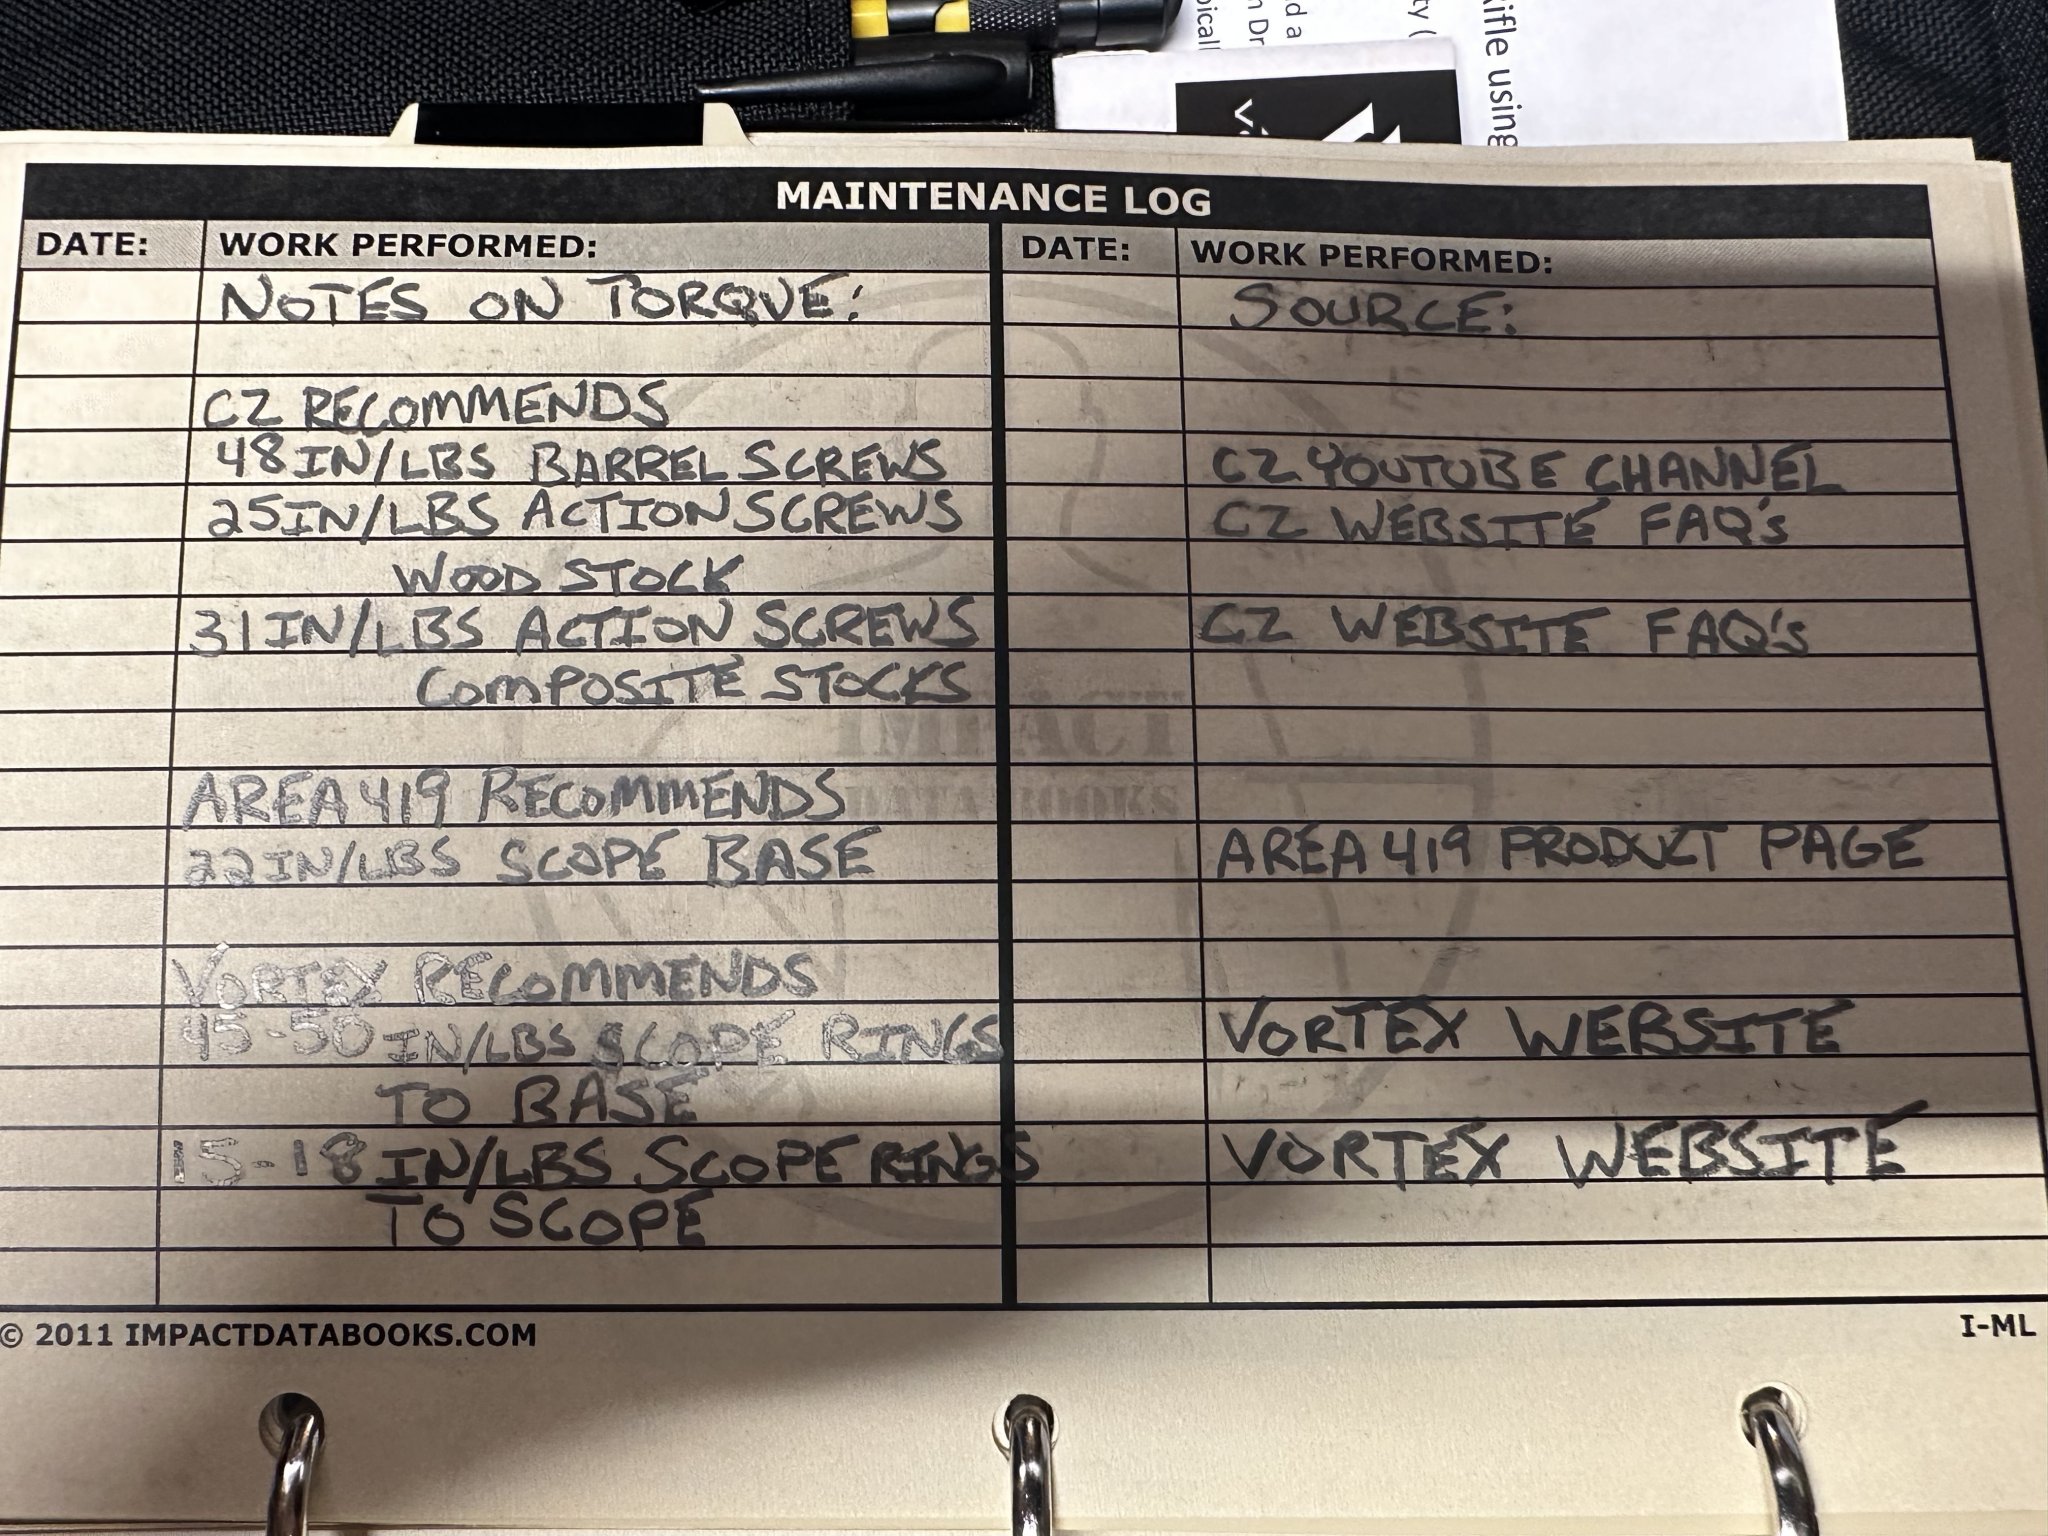 ifle using
ty (
d a
n Dr
picall
V
MAINTENANCE LOG
DATE: WORK PERFORMED: DATE: WORK PERFORMED:
NOTES ON TORQUE: SOURCE:
CZ RECOMMENDS
48 IN/LBS BARREL SCREWS CZ YOUTUBE CHANNEL
25 IN/LBS ACTION SCREWS CZ WEBSITE FAQ's
WOOD STOCK
31 IN/LBS ACTION SCREWS CZ WEBSITE FAQ's
COMPOSITE STOCKS
IMPACT
DATA BOOKS
AREA 419 RECOMMENDS
22 IN/LBS SCOPE BASE AREA 419 PRODUCT PAGE
VORTEX RECOMMENDS
45-50 IN/LBS SCOPE RINGS VORTEX WEBSITE
TO BASE
15-18 IN/LBS SCOPE RINGS VORTEX WEBSITE
TO SCOPE
© 2011 IMPACTDATABOOKS.COM I-ML